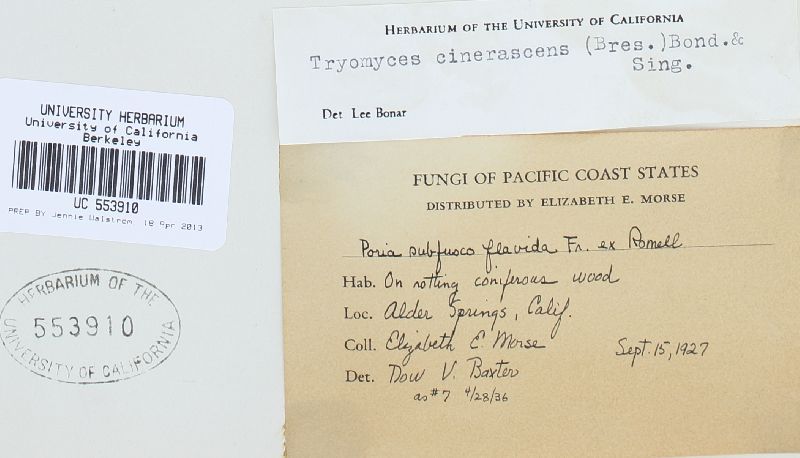 HERBARIUM OF THE UNIVERSITY OF CALIFORNIA
Tryomyces cinerascens (Bres.)Bond.&
Sing.
Det Lee Bonar
UNIVERSITY HERBARIUM
University of California
Berkeley
UC 553910
PREP BY Jennie Walstrom 18 Apr 2013
HERBARIUM OF THE
553910
UNIVERSITY OF CALIFORNIA
FUNGI OF PACIFIC COAST STATES
DISTRIBUTED BY ELIZABETH E. MORSE
Poria subfusco flavida Fr. ex Romell
Hab. On rotting coniferous wood
Loc. Alder Springs, Calif.
Coll. Elizabeth E. Morse Sept. 15, 1927
Det. Dow V. Baxter
as #7 4/28/36